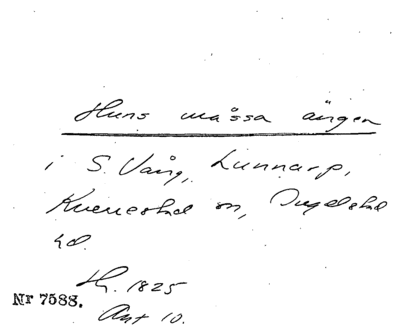 Huns måssa ängen
i S. Vång, Lunnarp,
Kverrestad sn, Ingelstad
hd.
Hy. 1825
Nr 7588.
Akt 10.